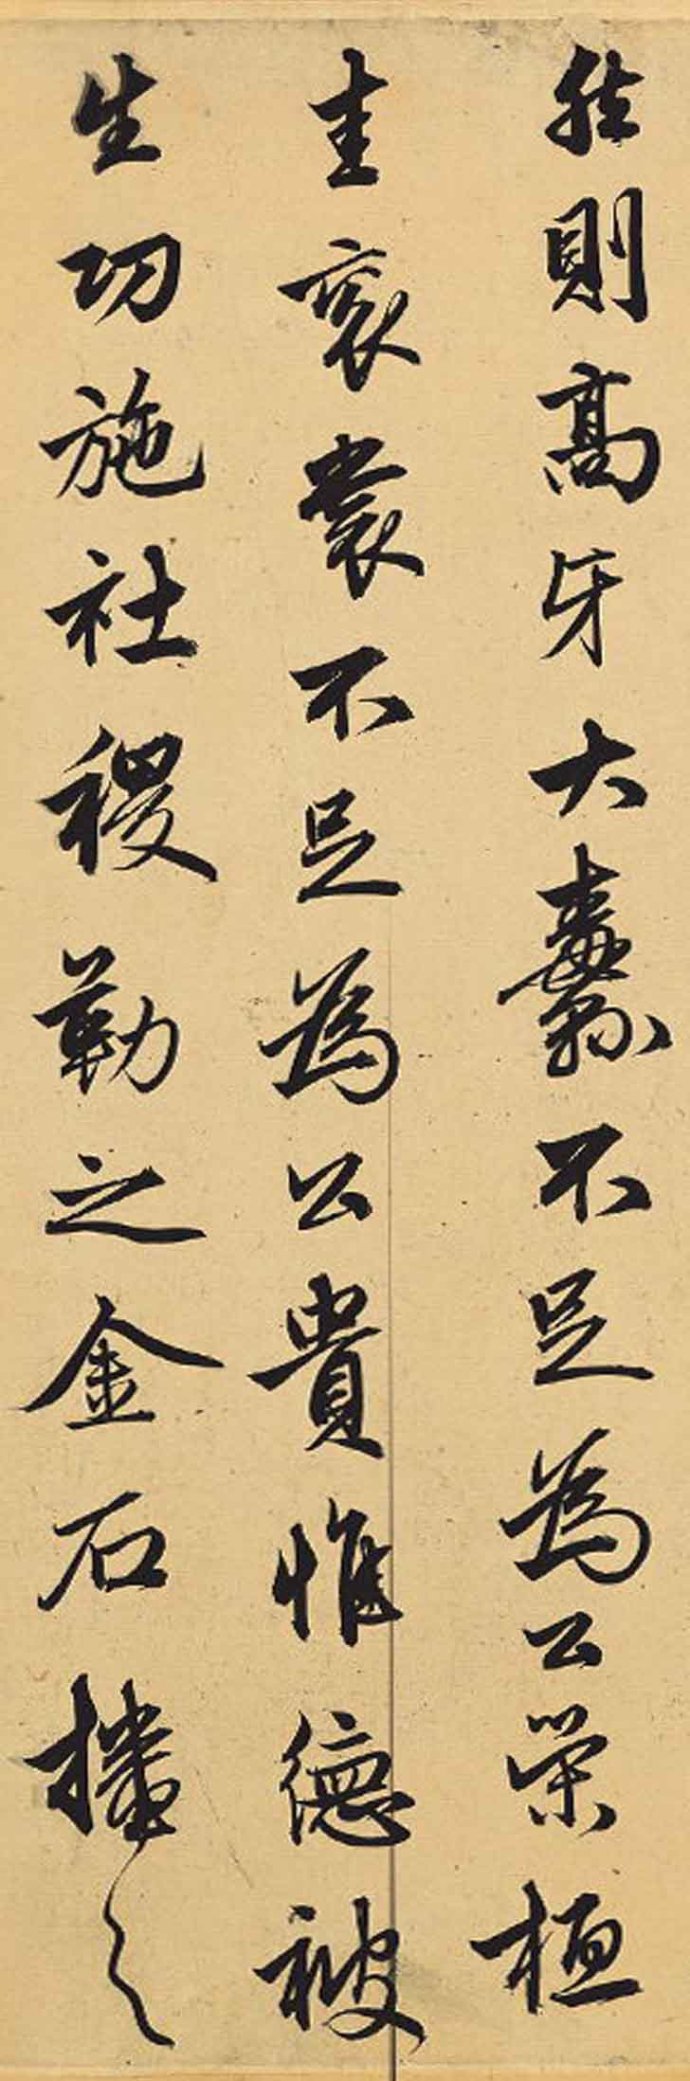 然則高牙大纛不足為公榮桓
圭衮裳不足為公貴惟德被
生功施社稷勒之金石播之